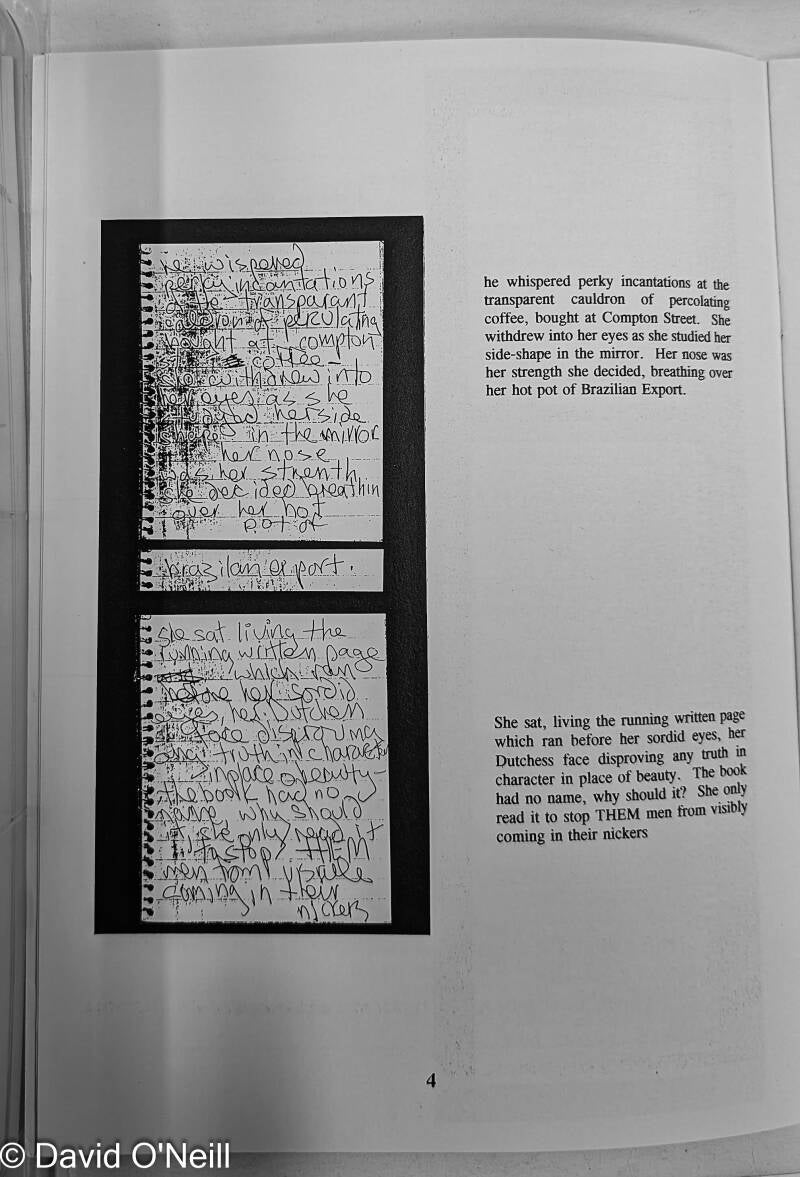 he wispered
perky incantations
at the transparant
caldron of perculating
bought at compton
coffee
she withdrew into
her eyes as she
studied her side
shape in the mirror
her nose
was her strenth
she decided breathin
over her hot
pot of
brazilan export.
she sat living the
running written page
which ran
before her sordid
eyes, her Dutchess
face
any truth in character
in place of beauty-
the book had no
name, why should
it she only read it
to stop THEM
men from
coming in their
nickers
he whispered perky incantations at the
transparent cauldron of percolating
coffee, bought at Compton Street. She
withdrew into her eyes as she studied her
side-shape in the mirror. Her nose was
her strength she decided, breathing over
her hot pot of Brazilian Export.
She sat, living the running written page
which ran before her sordid eyes, her
Dutchess face disproving any truth in
character in place of beauty. The book
had no name, why should it? She only
read it to stop THEM men from visibly
coming in their nickers
4
© David O'Neill